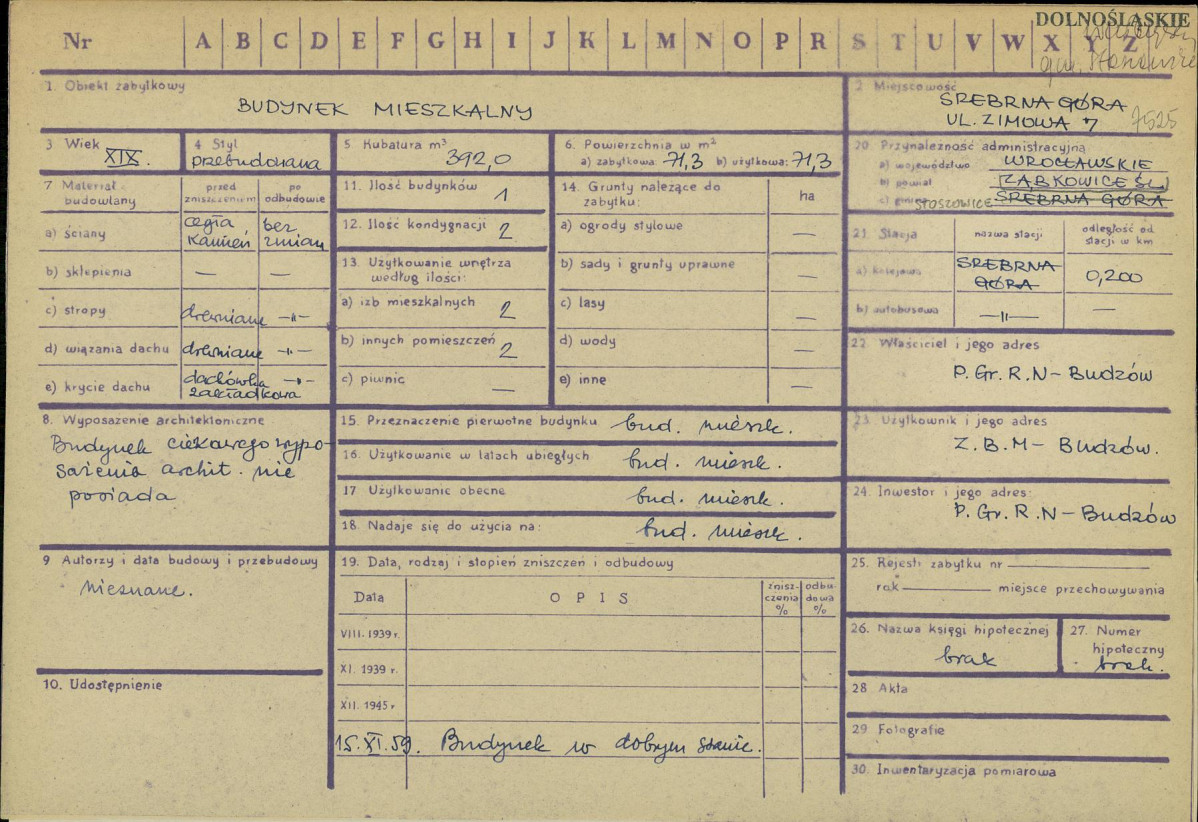 DOLNOŚLĄSKIE
Nr A B C D E F G H I J K L M N O P R S T U V W X Y Z
gm.
1. Obiekt zabytkowy
BUDYNEK MIESZKALNY
2 Miejscowość
SREBRNA GÓRA
UL. ZIMOWA 7
7525
3 Wiek
XIX.
4 Styl
przebudowana
5 Kubatura m³
392,0
6. Powierzchnia w m²
a) zabytkowa: 71,3 b) użytkowa: 71,3
20. Przynależność administracyjna
a) województwo WROCŁAWSKIE
b) powiat ZĄBKOWICE ŚL.
c) gmina STOSZOWICE SREBRNA GÓRA
7 Materiał budowlany
przed zniszczeniem
po odbudowie
a) ściany cegła kamień bez zmian
b) sklepienia — —
c) stropy drewniane —"—
d) wiązania dachu drewniane —"—
e) krycie dachu dachówka zakładkowa —"—
11. Ilość budynków 1
12. Ilość kondygnacji 2
13. Użytkowanie wnętrza
według ilości:
a) izb mieszkalnych 2
b) innych pomieszczeń 2
c) piwnic —
14. Grunty należące do
zabytku: ha
a) ogrody stylowe —
b) sady i grunty uprawne —
c) lasy —
d) wody —
e) inne —
21. Stacja
nazwa stacji
odległość od
stacji w km
a) kolejowa SREBRNA GÓRA 0,200
b) autobusowa —"— —
22. Właściciel i jego adres
P. Gr. R. N - Budzów
8. Wyposażenie architektoniczne
Budynek ciekawego wypo-
sażenia archit. nie
posiada
15. Przeznaczenie pierwotne budynku bud. mieszk.
16. Użytkowanie w latach ubiegłych bud. mieszk.
17 Użytkowanie obecne bud. mieszk.
18. Nadaje się do użycia na: bud. mieszk.
23. Użytkownik i jego adres
Z. B. M - Budzów.
24. Inwestor i jego adres:
P. Gr. R. N - Budzów
9 Autorzy i data budowy i przebudowy
nieznane.
19. Data, rodzaj i stopień zniszczeń i odbudowy
Data
OPIS
znisz-
czenia
%
odbu-
dowa
%
VIII. 1939 r.
XI. 1939 r.
XII. 1945 r
15. XI. 59. Budynek w dobrym stanie.
25. Rejestr zabytku nr
rok miejsce przechowywania
26. Nazwa księgi hipotecznej
brak
27. Numer
hipoteczny
brak.
10. Udostępnienie
28 Akta
29 Fotografie
30. Inwentaryzacja pomiarowa